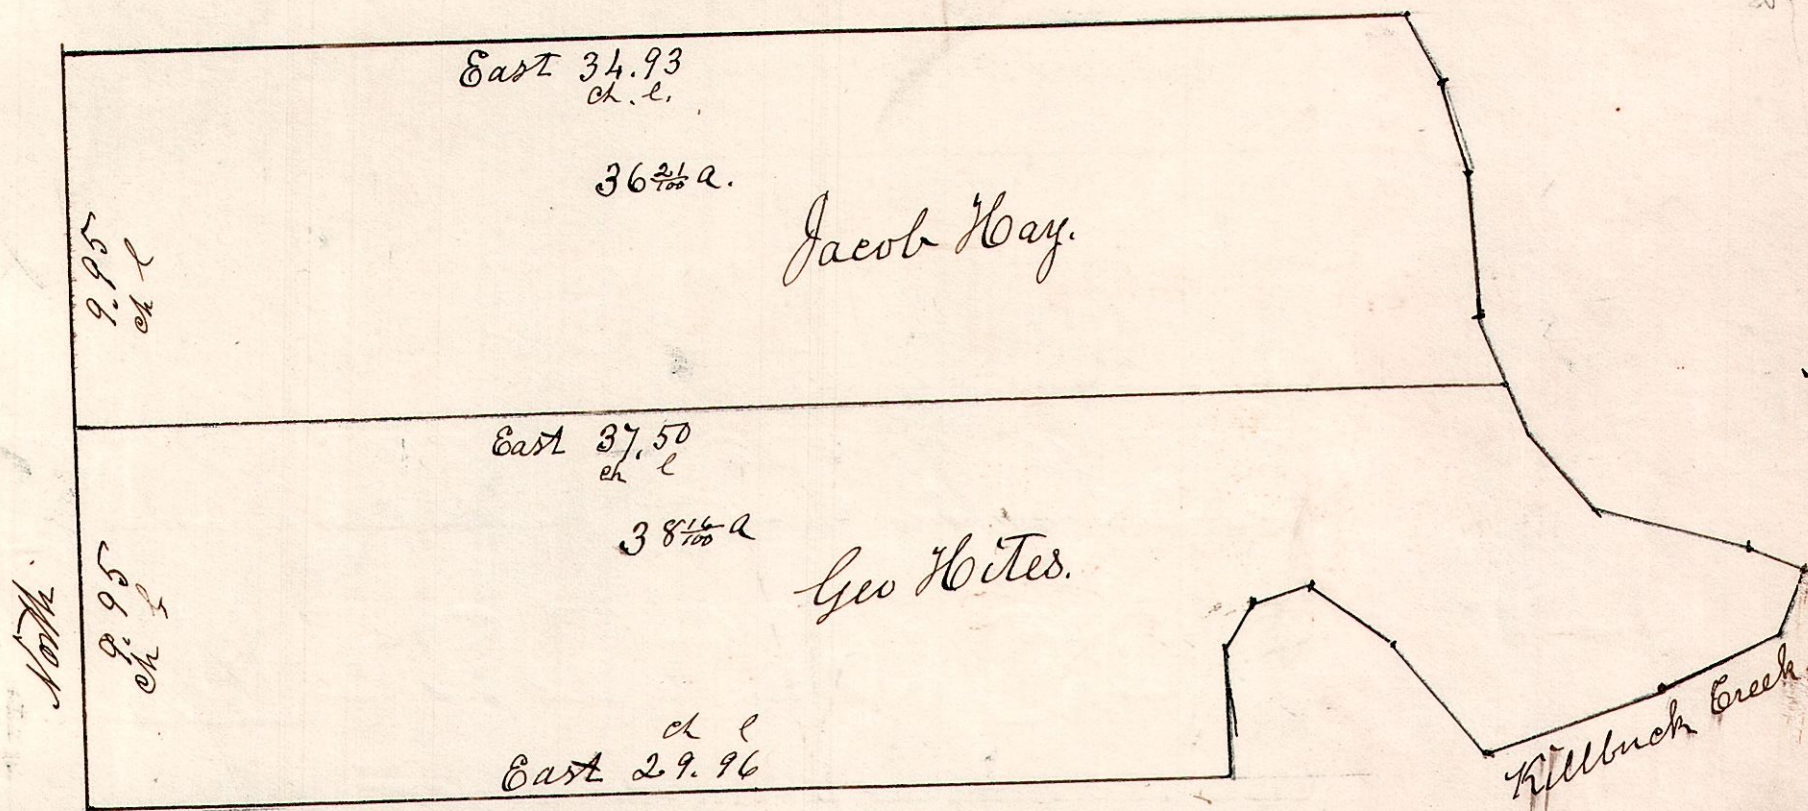 East 34.93
ch. l.
36 21/100 a.
Jacob Hay.
9.95
ch l
East 37.50
ch l
38 16/100 a
Geo Hites.
9.95
ch l
North
ch l
East 29.96
Killbuck Creek.